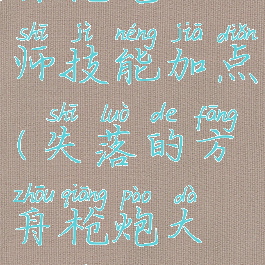 shī jì néng jiā diǎn
师技能加点
shī luò de fāng
(失落的方
zhōu qiāng pào dà
舟枪炮大